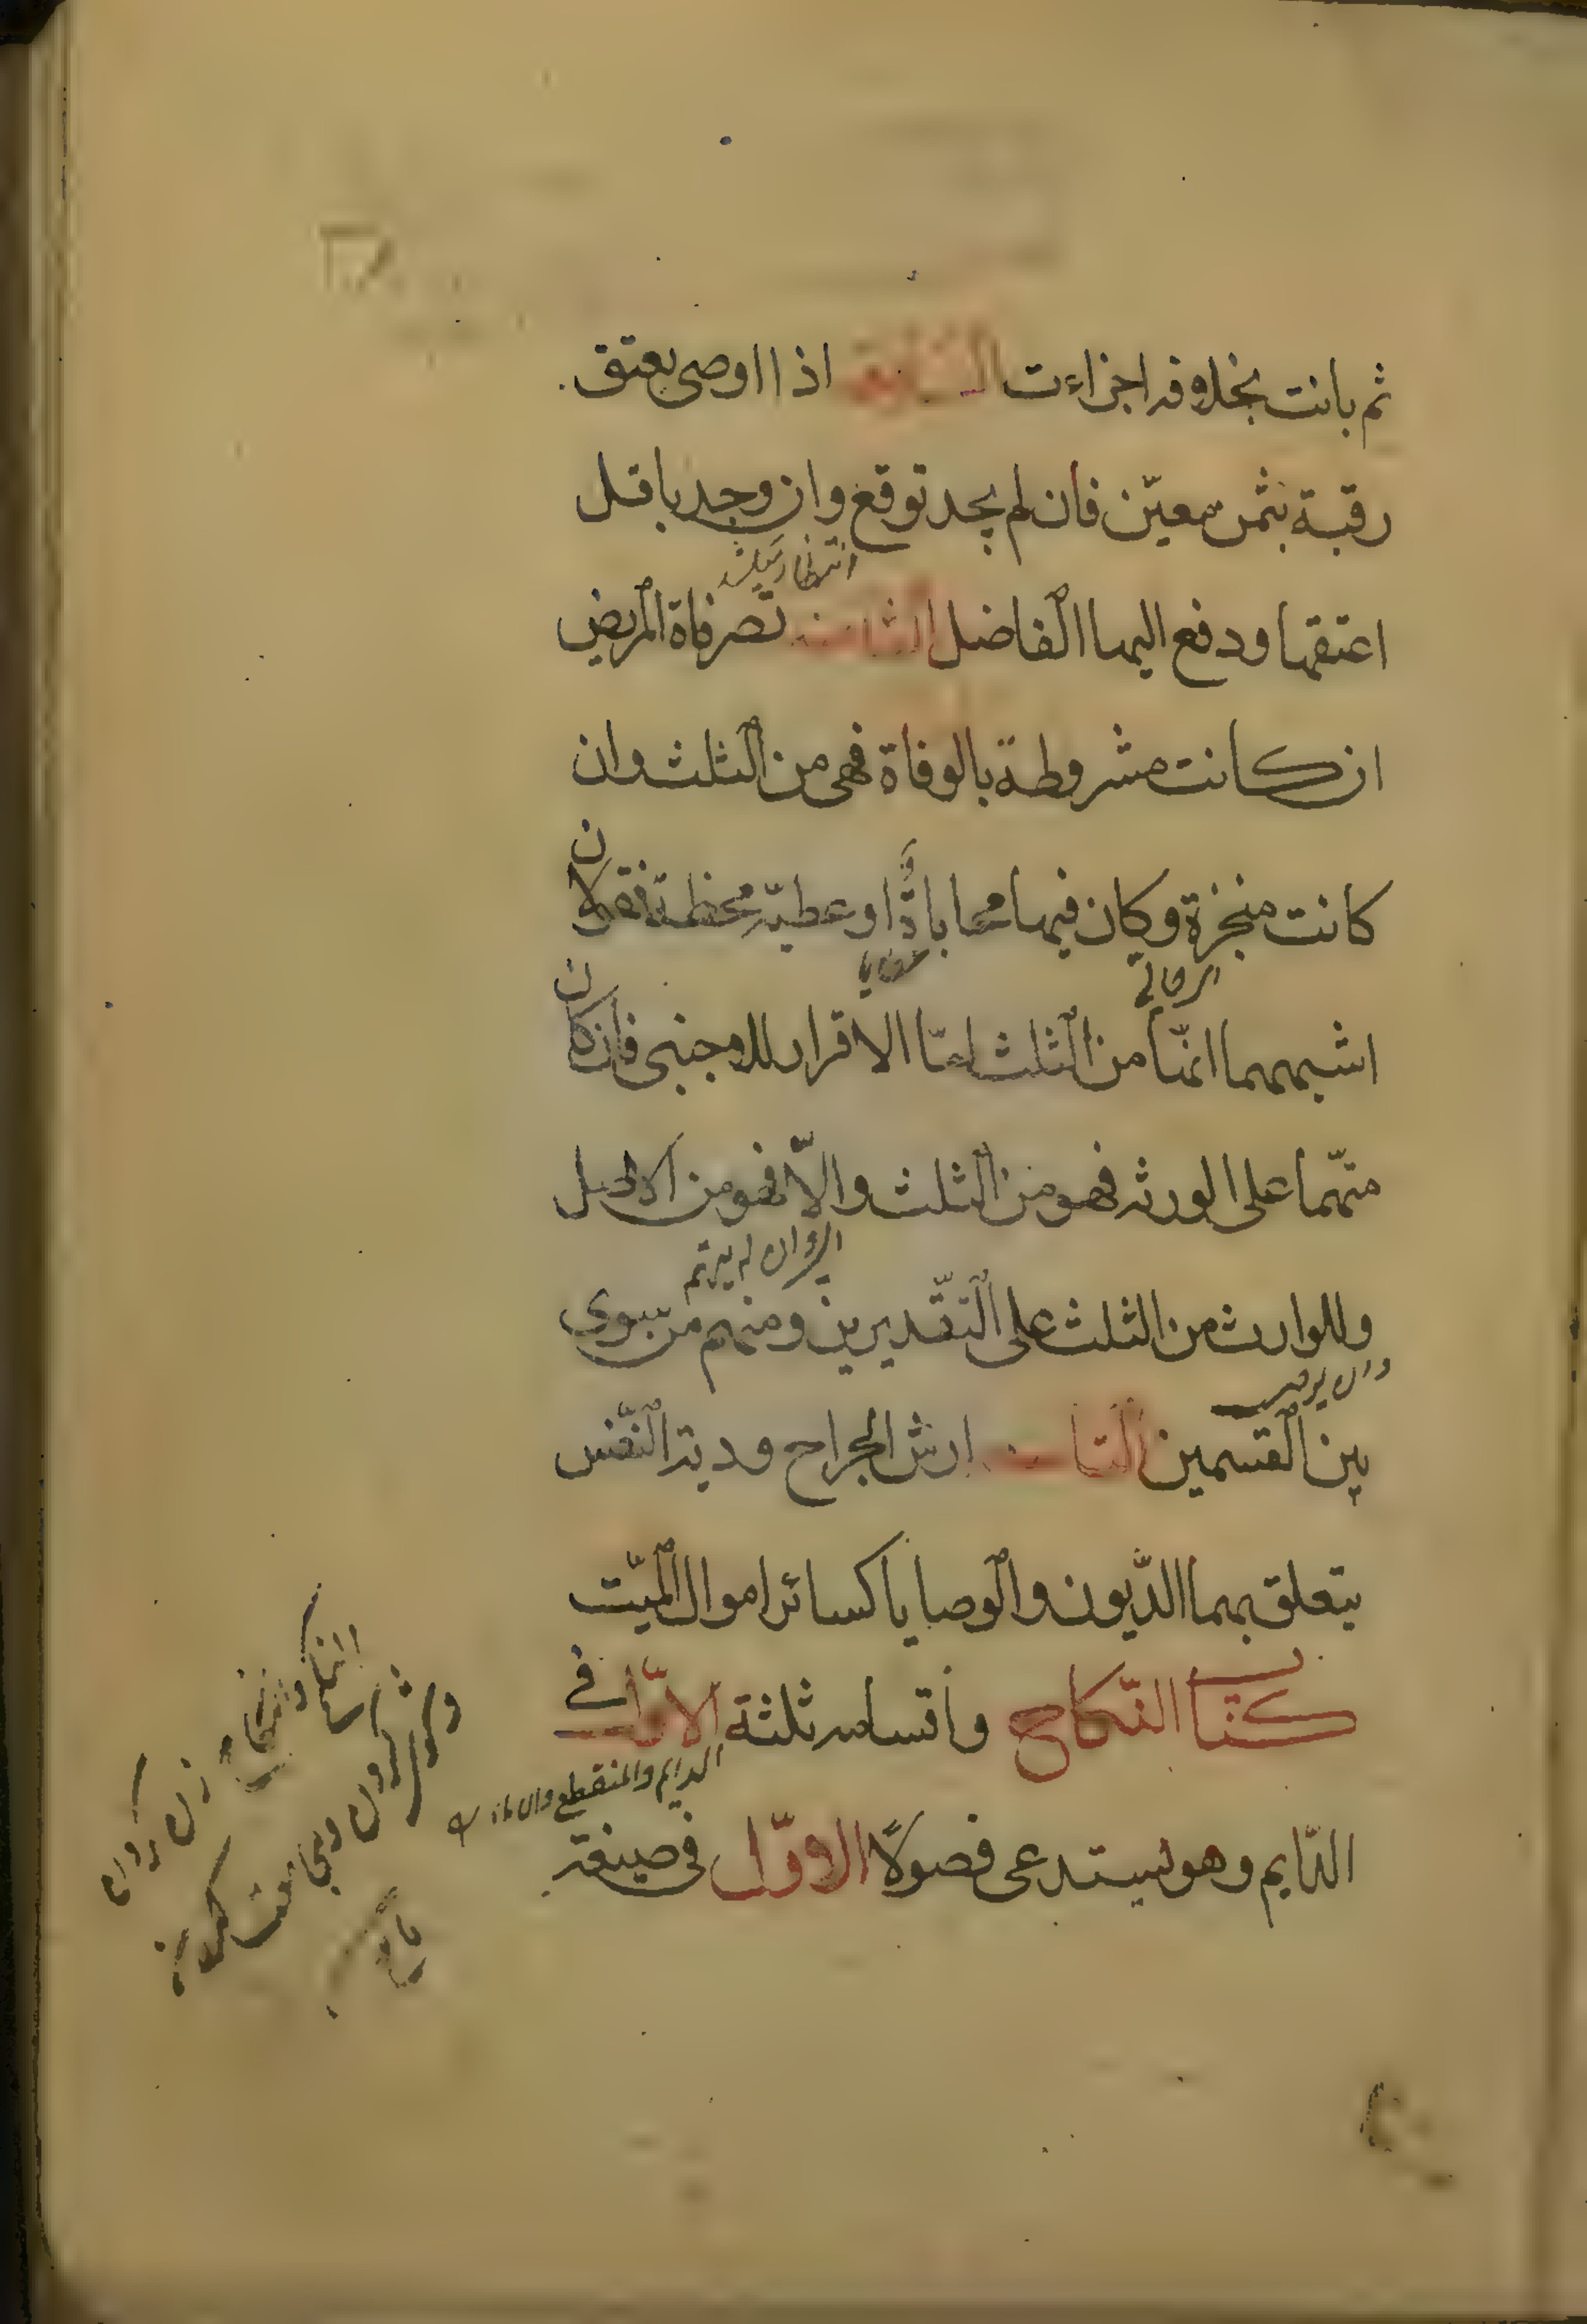 ثم بانت بخلافه اجزاءت السابعة اذا اوصى بعتق
رقبة بثمن معيّن فان لم يجد توقع وان وجد باقل
انتظار
اعتقها ودفع اليها الفاضل الثامنة تصرفاة المريض
ان كانت مشروطة بالوفاة فهى من الثلث وان
كانت منجزة وكان فيها محاباة او عطيّة محضة فقولان
اشبههما انّها من الثلث امّا الاقرار للاجنبى فان كان
متّهما على الورثه فهو من الثلث والاّ فهو من الاصل
وللوارث من الثلث على التّقديرين ومنهم من سوى
بين القسمين التاسعة ارش الجراح ودية النّفس
يتعلق بهما الدّيون والوصايا كسائر اموال الميّت
كتاب النّكاح وأقسامه ثلثة الاوّل فى
الدايم والمنقطع
الدّايم وهو يستدعى فصولاً الاوّل فى صيغته